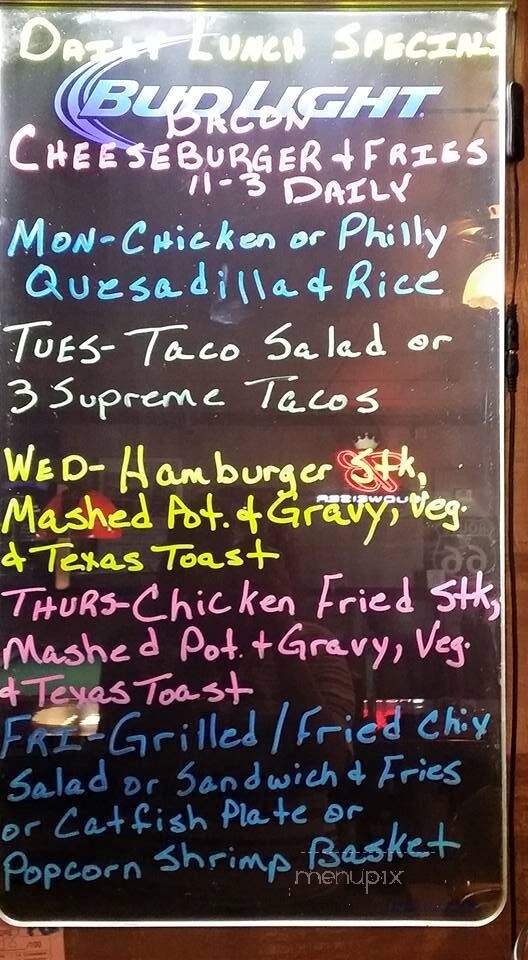 Daily Lunch Specials
BUD LIGHT
Bacon
Cheeseburger + Fries
11-3 Daily
Mon-Chicken or Philly
Quesadilla & Rice
Tues- Taco Salad or
3 Supreme Tacos
Wed- Hamburger Stk,
Mashed Pot. & Gravy, Veg.
& Texas Toast
Thurs-Chicken Fried Stk,
Mashed Pot. + Gravy, Veg.
& Texas Toast
Fri-Grilled/Fried Chix
Salad or Sandwich & Fries
or Catfish Plate or
Popcorn Shrimp Basket
menupix
66